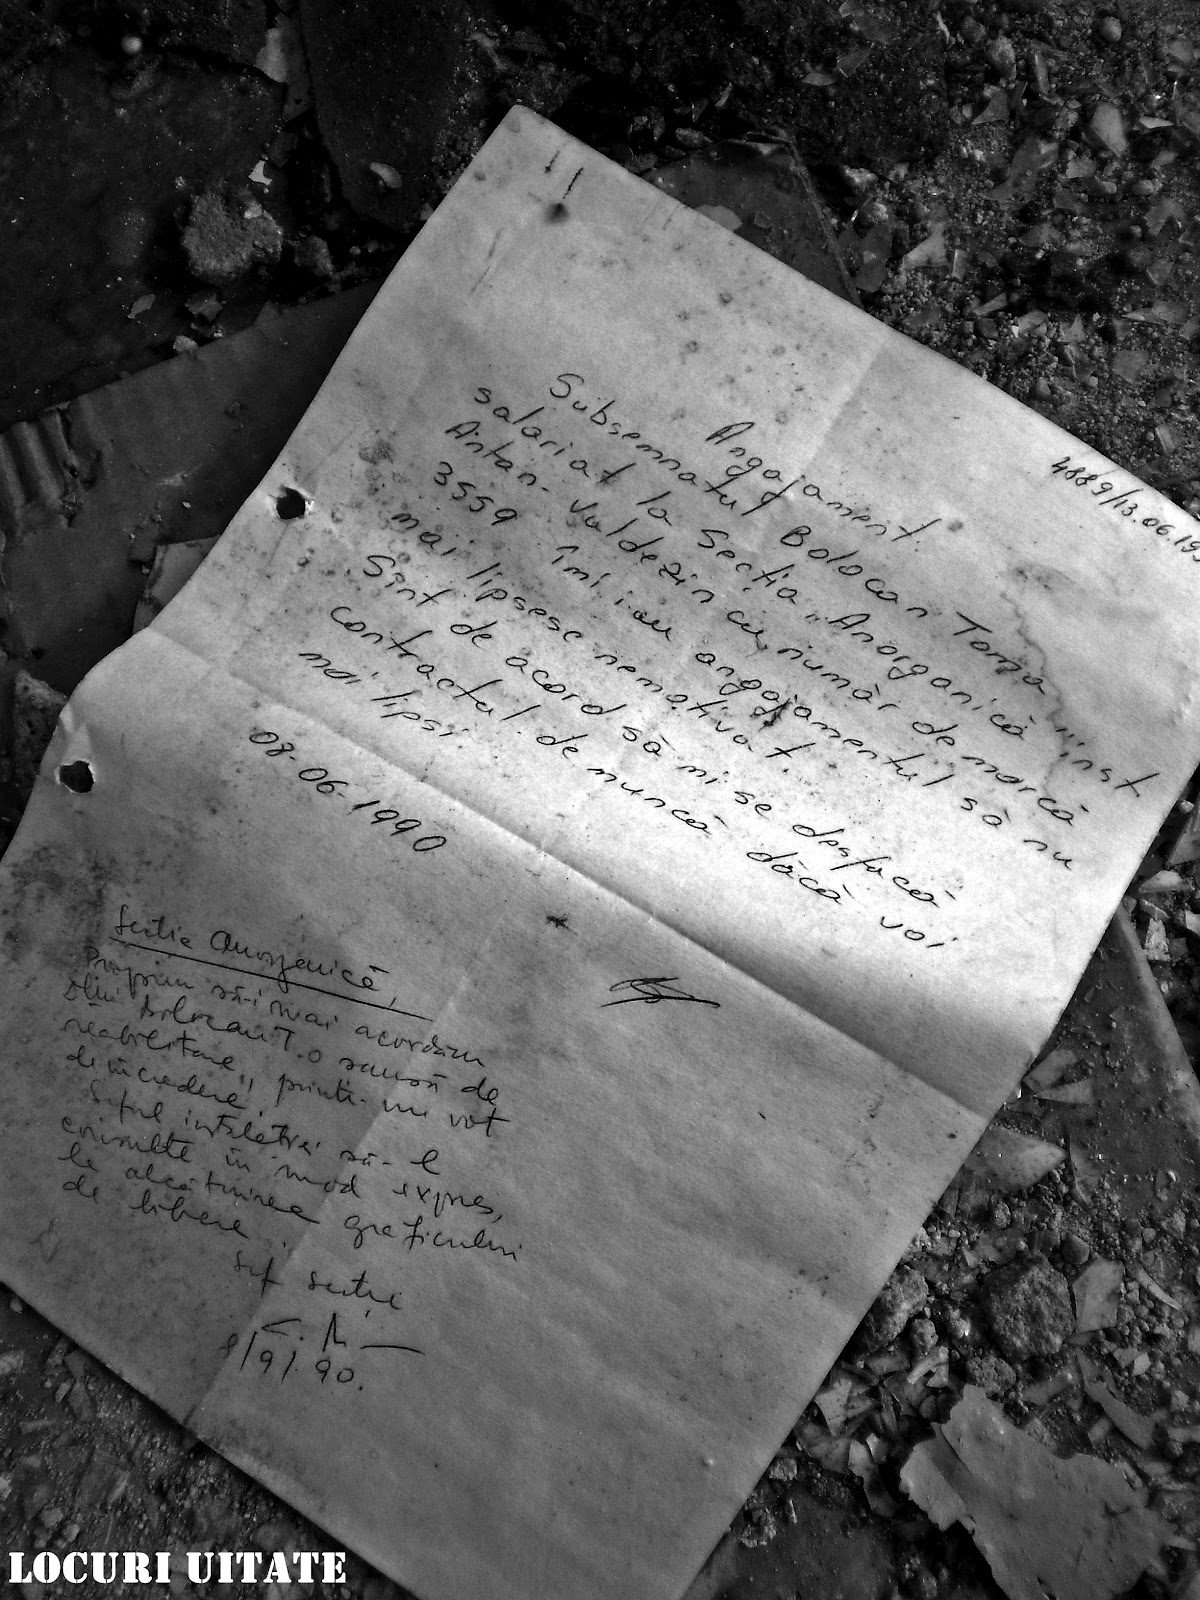 4889/13.06.19
Angajament.
Subsemnatul Bolocan Toma
salariat la Secția „Anorganică" inst.
Antan-Valdezin cu număr de marcă
3559 îmi iau angajamentul să nu
mai lipsesc nemotivat.
Sînt de acord să mi se desfacă
contractul de muncă dăcă voi
mai lipsi.
08-06-1990
Secția Anorganică,
Propun să-i mai acordăm
dlui Bolocan T. o șansă de
reabilitare, printr-un vot
de încredere.
Șeful instalației să-l
consulte în mod expres,
la alcătuirea graficului
de libere.
Șef secție
8/9/.90.
LOCURI UITATE